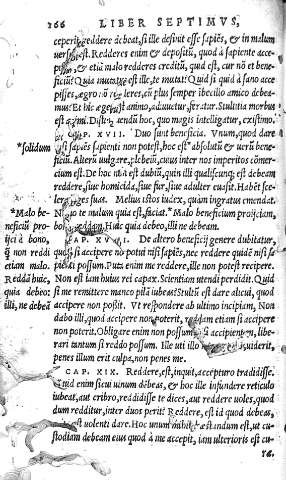 266 LIBER SEPTIMVS,
ceperit, reddere debeat, si ille desinit esse sapiēs, & in malum
versus est. Redderes enim & depositū, quod à sapiente acce-
pisses, & etiā malo redderes creditū, quid est, cur nō et bene-
ficiū? Quia mutatus est ille, te mutat? Quid si quid à sano acce-
pisses, ægro nō redderes, cū plus semper ibecillo amico debea-
mus? Et hic æger est animo, adiuuetur, feratur. Stultitia morbus
est animi. Distinguēdū hoc, quo magis intelligatur, existimo.
CAP. XVII. Duo sunt beneficia. Vnum, quod dare
*solidum nisi sapiēs sapienti non potest, hoc est* absolutū & uerū bene-
ficiū. Alterū uulgare, plebeiū, cuius inter nos imperitos cōmer-
cium est. De hoc nō ē dubiū, quin illi qualiscunq; est debeam
reddere, siue homicida, siue fur, siue adulter euasit. Habēt sce-
lera leges suas. Melius istos iudex, quàm ingratus emendat.
*Malo be- Nemo te malum quia est, faciat.* Malo beneficium proijciam,
neficiū pro bono reddam. Huic quia debeo, illi ne debeam.
ijcià bono, CAP. XVIII. De altero beneficij genere dubitatur,
q̄ non reddi quod si accipere nō potui nisi sapiēs, nec reddere quidē nisi sa-
etiam malo. pienti possum. Puta enim me reddere, ille non potest recipere.
Reddā huic, Non est iam huius rei capax. Scientiam utendi perdidit. Quid
quia debeo: si me remittere manco pilā iubeas? Stultū est dare alicui, quod
illi, ne debeā accipere non possit. Vt respondere ab ultimo incipiam. Non
dabo illi, quod accipere non poterit, reddam etiam si accipere
non poterit. Obligare enim non possum, nisi accipientem, libe-
rari tantum si reddo possum. Ille uti illo non poterit? uiderit,
penes illum erit culpa, non penes me.
CAP. XIX. Reddere, est, inquit, accepturo tradidisse.
Quid enim si cui uinum debeas, & hoc ille infundere reticulo
iubeat, aut cribro, reddidisse te dices, aut reddere uoles, quod
dum redditur, inter duos perit? Reddere, est id quod debeas,
ei uolenti dare. Hoc unum mihi præstandum est, ut cu-
stodiam debeam eius quod à me accepit, iam ulterioris est cu-